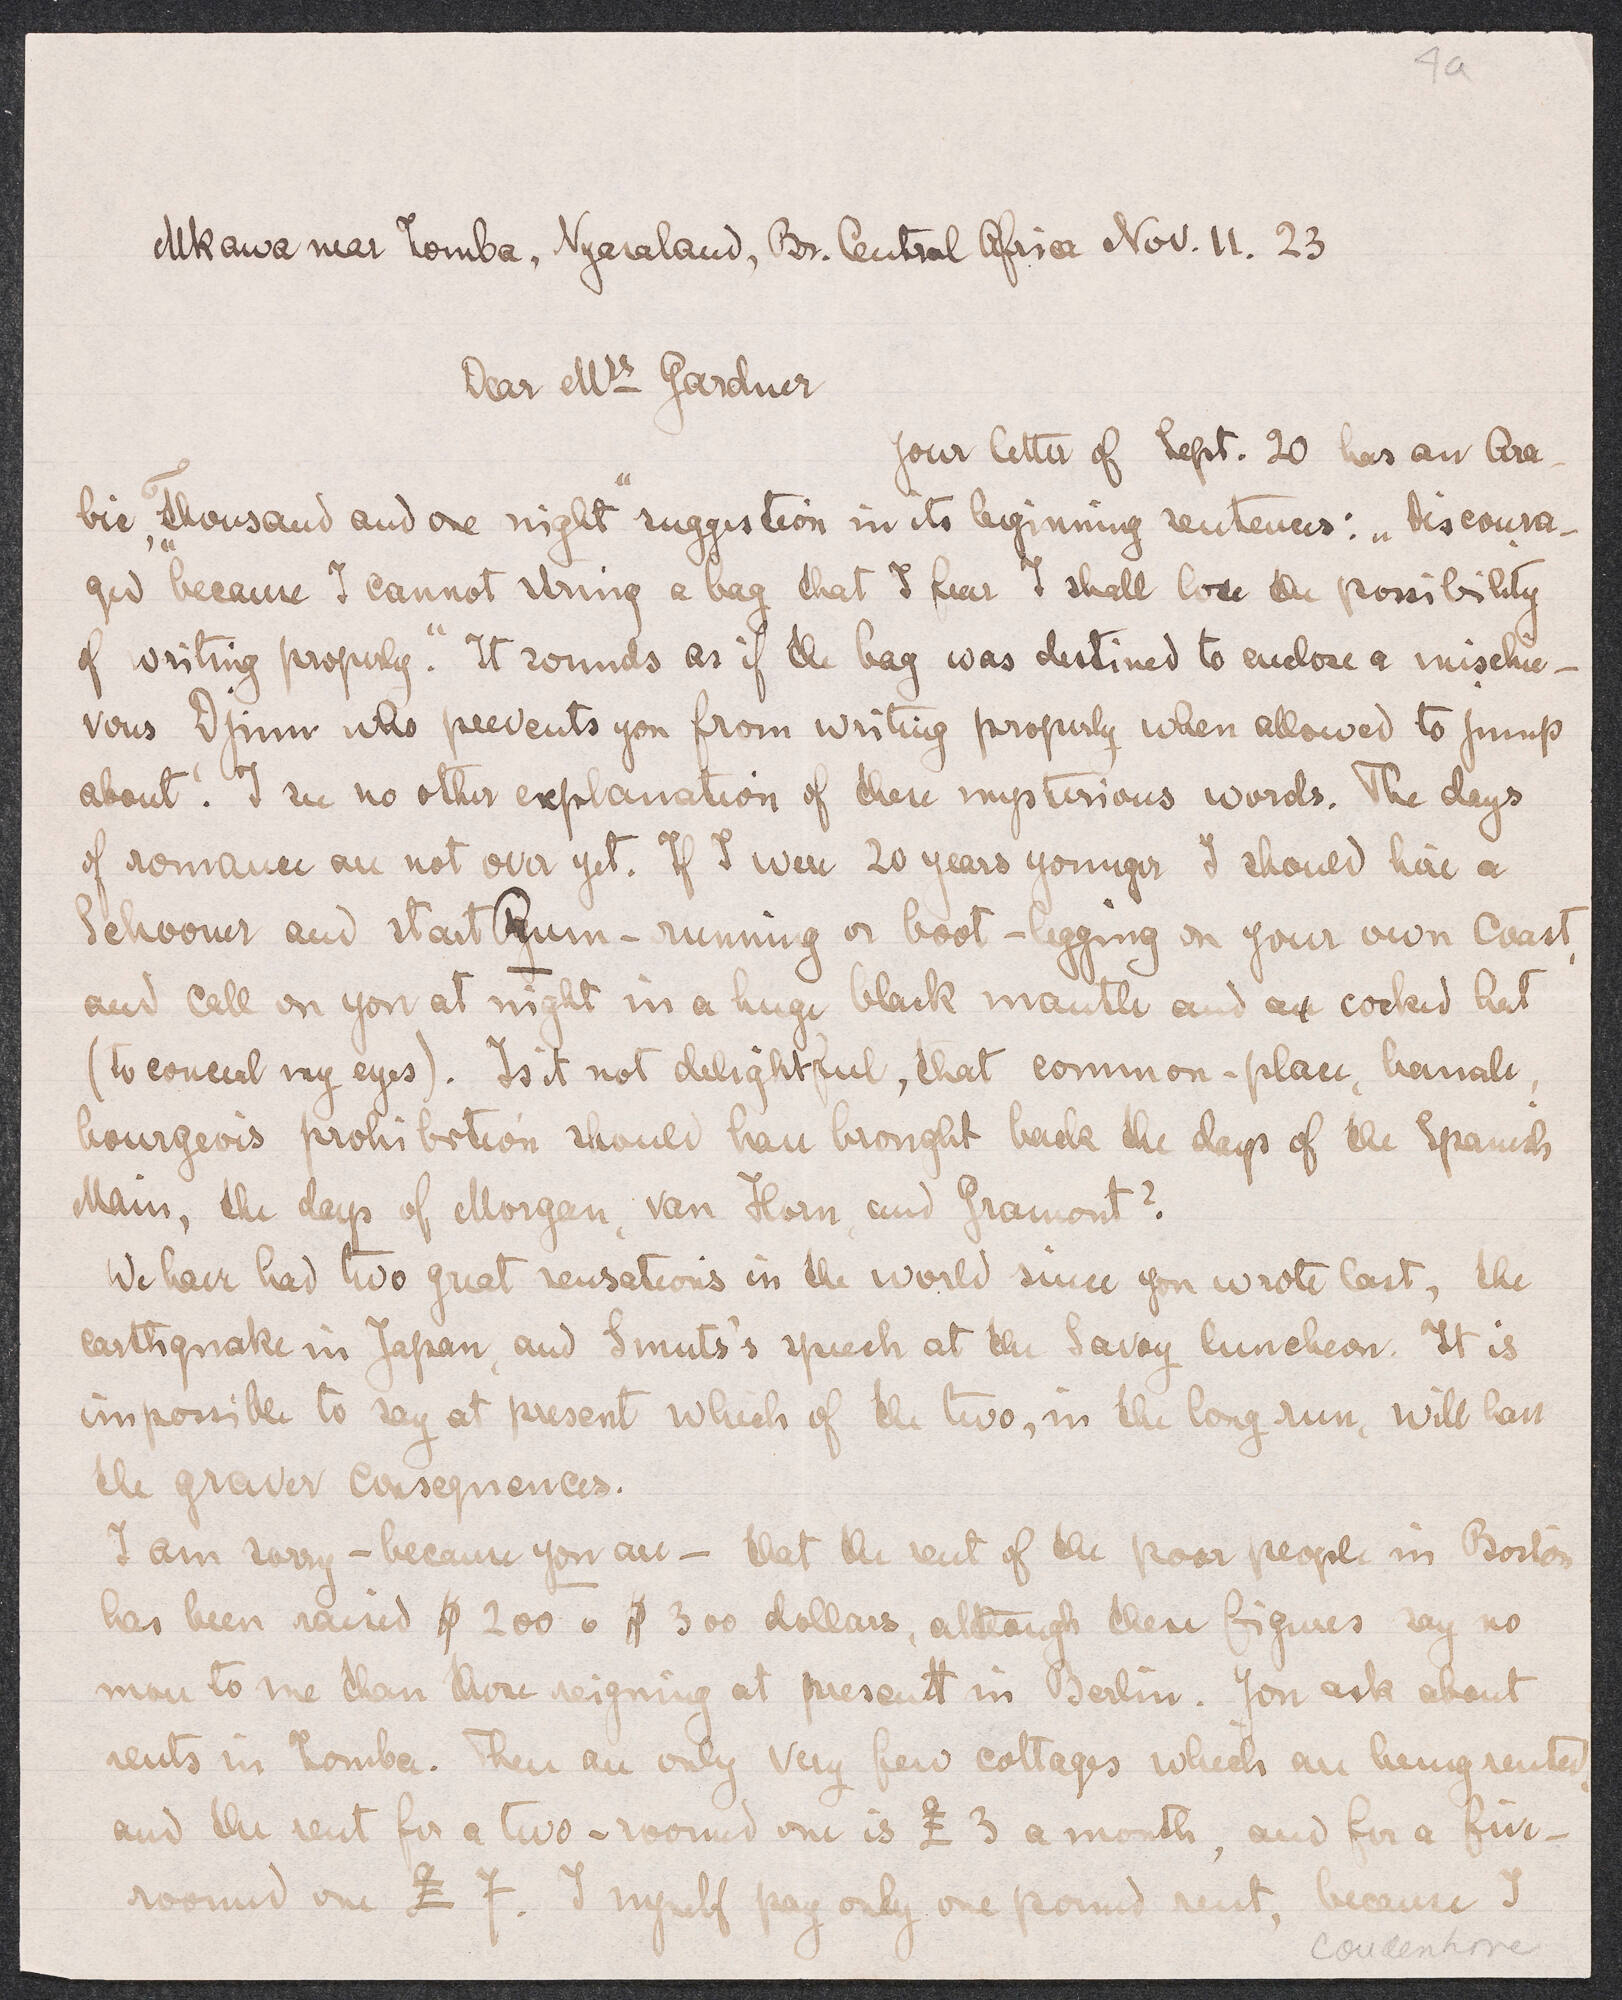 4a
Mkawa near Zomba, Nyasaland, Br. Central Africa Nov. 11. 23
Dear Mrs Gardner
your letter of Sept. 20 has an Ara-
bic „Thousand and one night“ suggestion in its beginning sentences: „Discoura-
ged “because I cannot string a bag that I fear I shall lose the possibility
of writing properly.“ It sounds as if the bag was destined to enclose a mischie-
vous Djinn who prevents you from writing properly when allowed to jump
about. I see no other explanation of these mysterious words. The days
of romance are not over yet. If I were 20 years younger I should hire a
Schooner and start Rum-running or boot-legging on your own Coast,
and call on you at night in a huge black mantle and a cocked hat
(to conceal my eyes). Is it not delightful, that common-place, banale,
bourgeois prohibition should have brought back the days of the Spanish
Main, the days of Morgan, van Horn, and Gramont?
We have had two great sensations in the world since you wrote last, the
earthquake in Japan, and Smuts's speech at the Savoy luncheon. It is
impossible to say at present which of the two, in the long run, will have
the graver consequences.
I am sorry - because you are - that the rent of the poor people in Boston
has been raised $ 200 o $ 300 dollars, although these figures say no
more to me than those reigning at present in Berlin. You ask about
rents in Zomba. There are only very few cottages which are being rented,
and the rent for a two-roomed one is £ 3 a month, and for a five-
roomed one £ 7. I myself pay only one pound rent, because I
Coudenhove